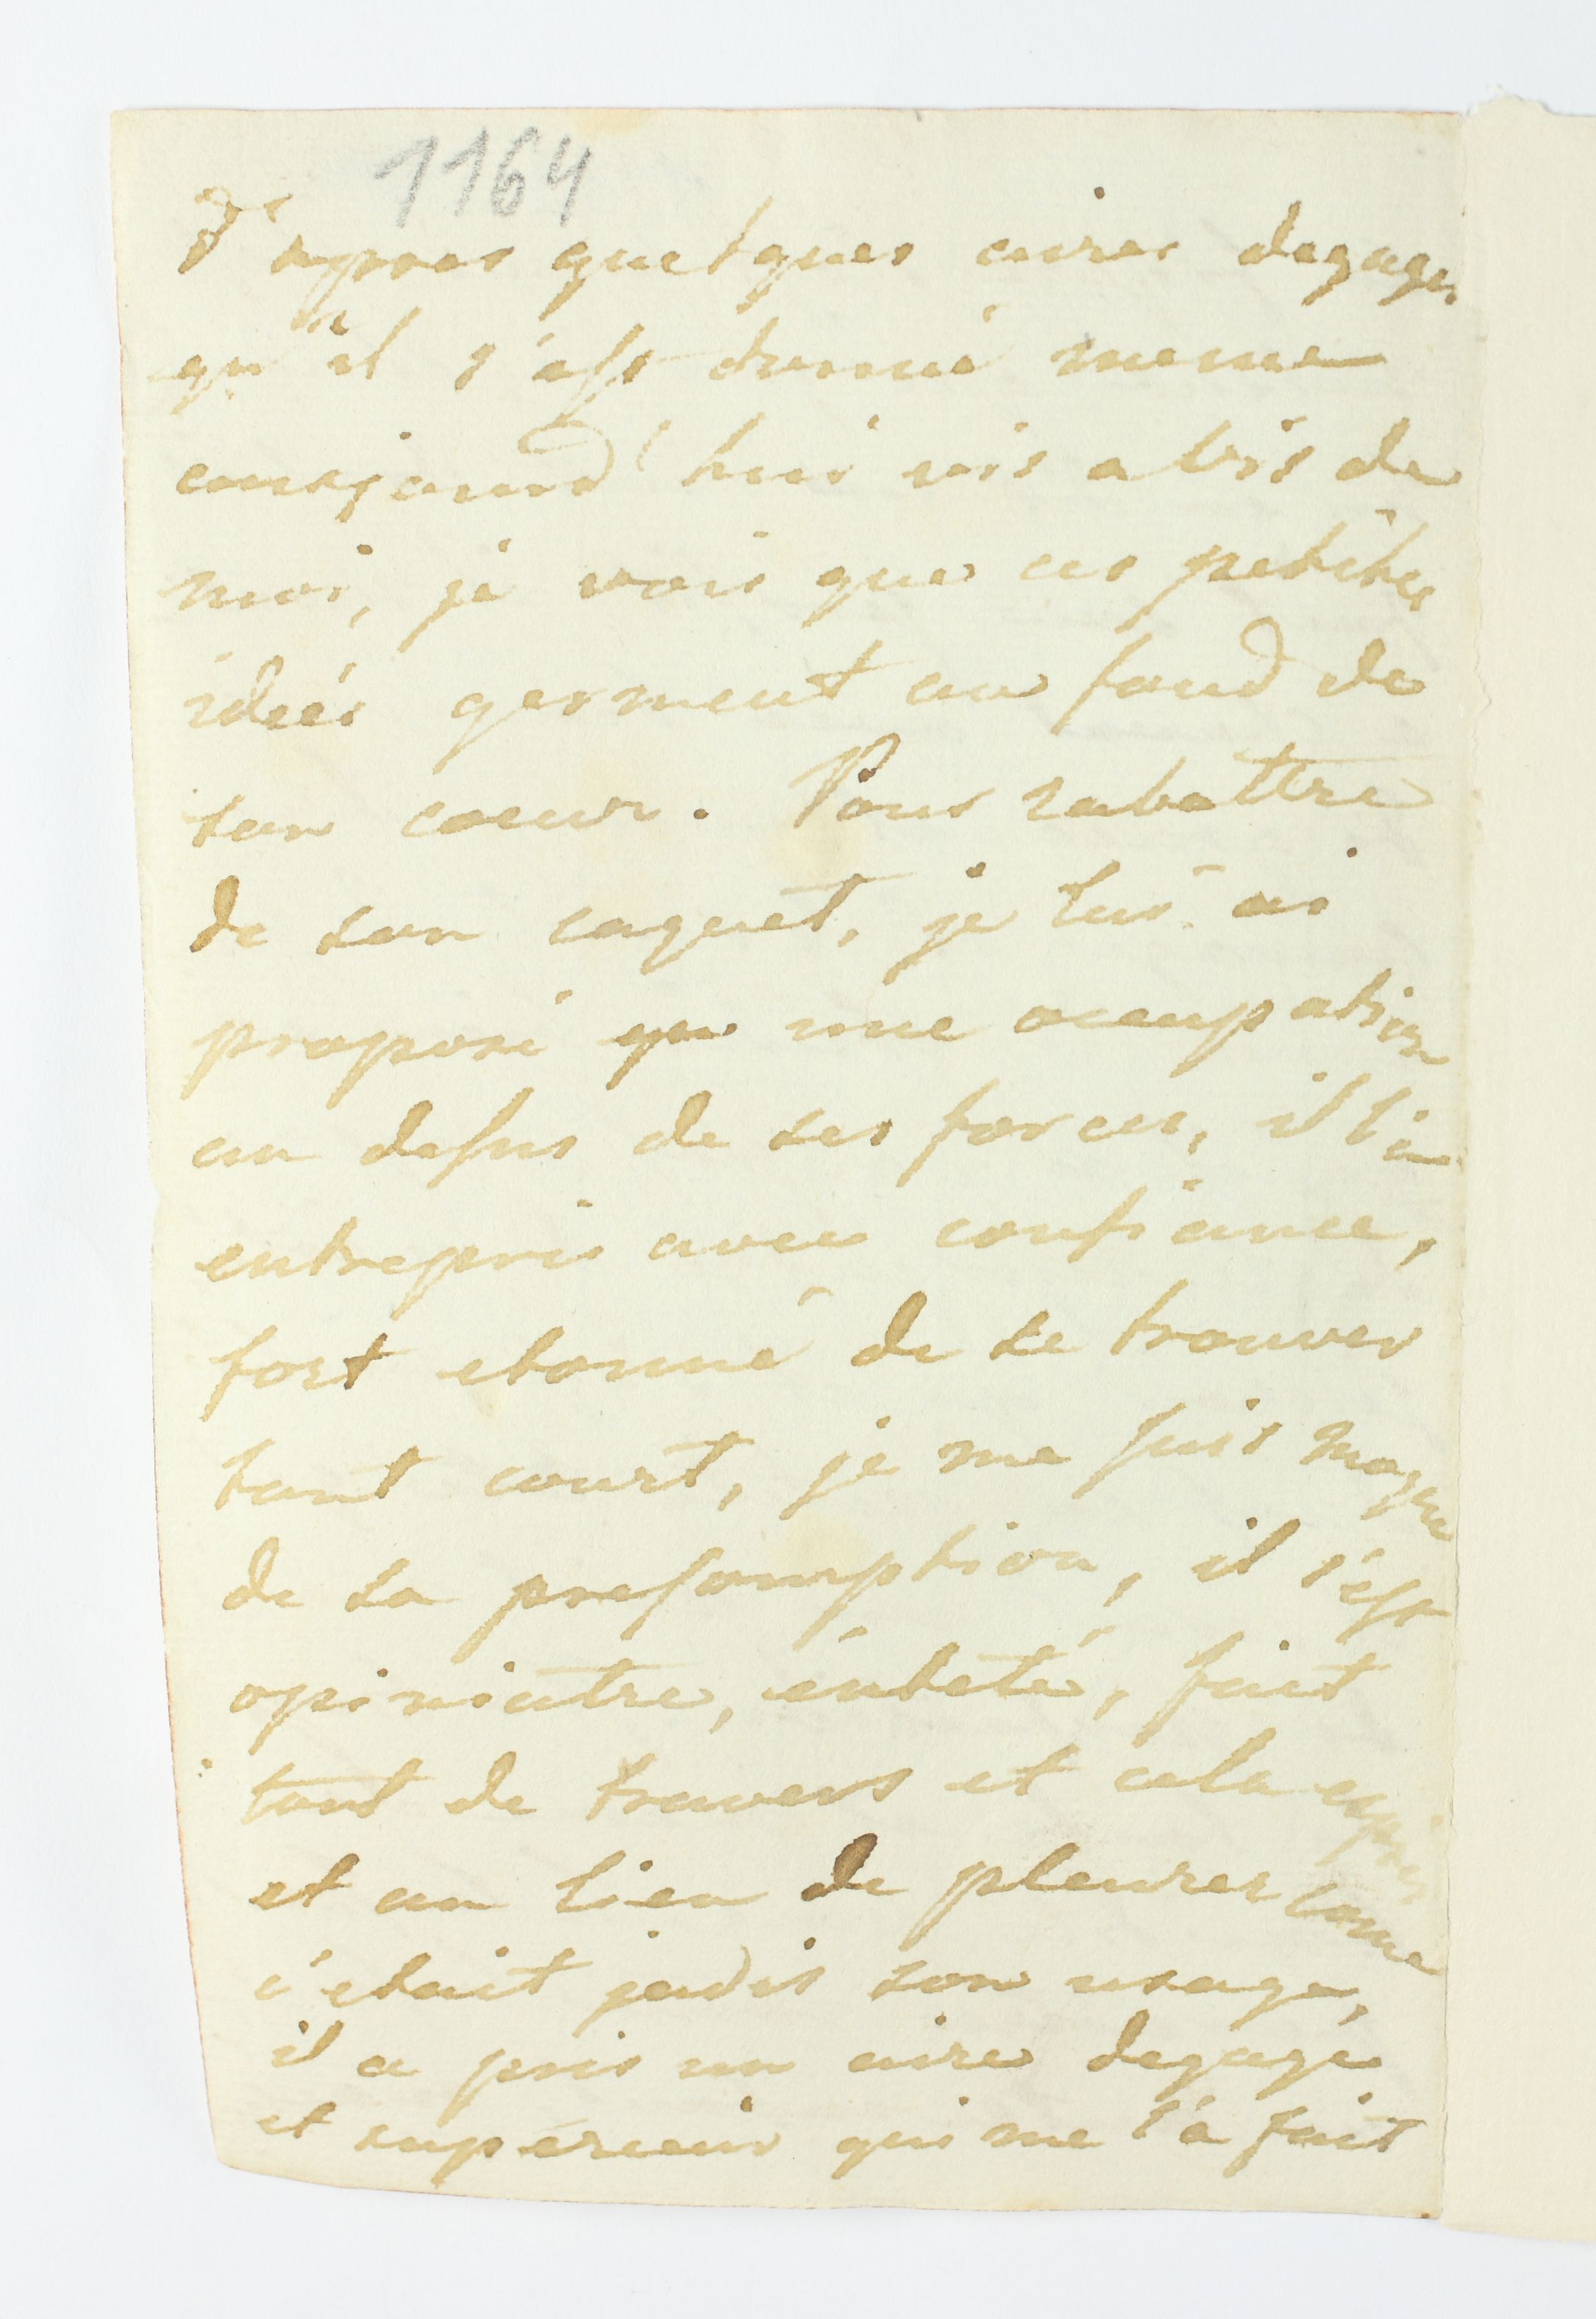 1164
D'apres quelques aires degagés
qu'il s'est donné meme
aujourd'hui vis a vis de
moi, je vois que ces petites
ideés germent au fond de
son coeur. Pour rabattre
de son caquet, je lui ai
proposé une ocupation
au dessus de ses forces, il l'a
entrepris avec confiance,
fort etonné de se trouver
tout court, je me suis moqué
de sa presomption, il s'est
opiniatre, entété, fait
tout de travers et cela exprès
et au lieu de pleurer come
c'etait jadis son usage,
il a pris un aire degagé
et superieur qui me l'a fait